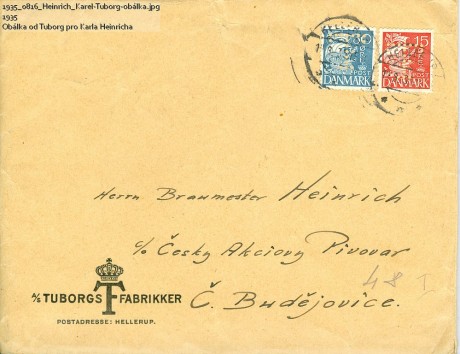 1935_0816_Heinrich_Karel-Tuborg-obálka.jpg
1935
Obálka od Tuborg pro Karla Heinricha
30 15
POST POST
DANMARK DANMARK
Herrn Braumester Heinrich
c/o Česky Akciovy Pivovar
48 I
Č. Budějovice.
A/S TUBORGS FABRIKKER
POSTADRESSE: HELLERUP.